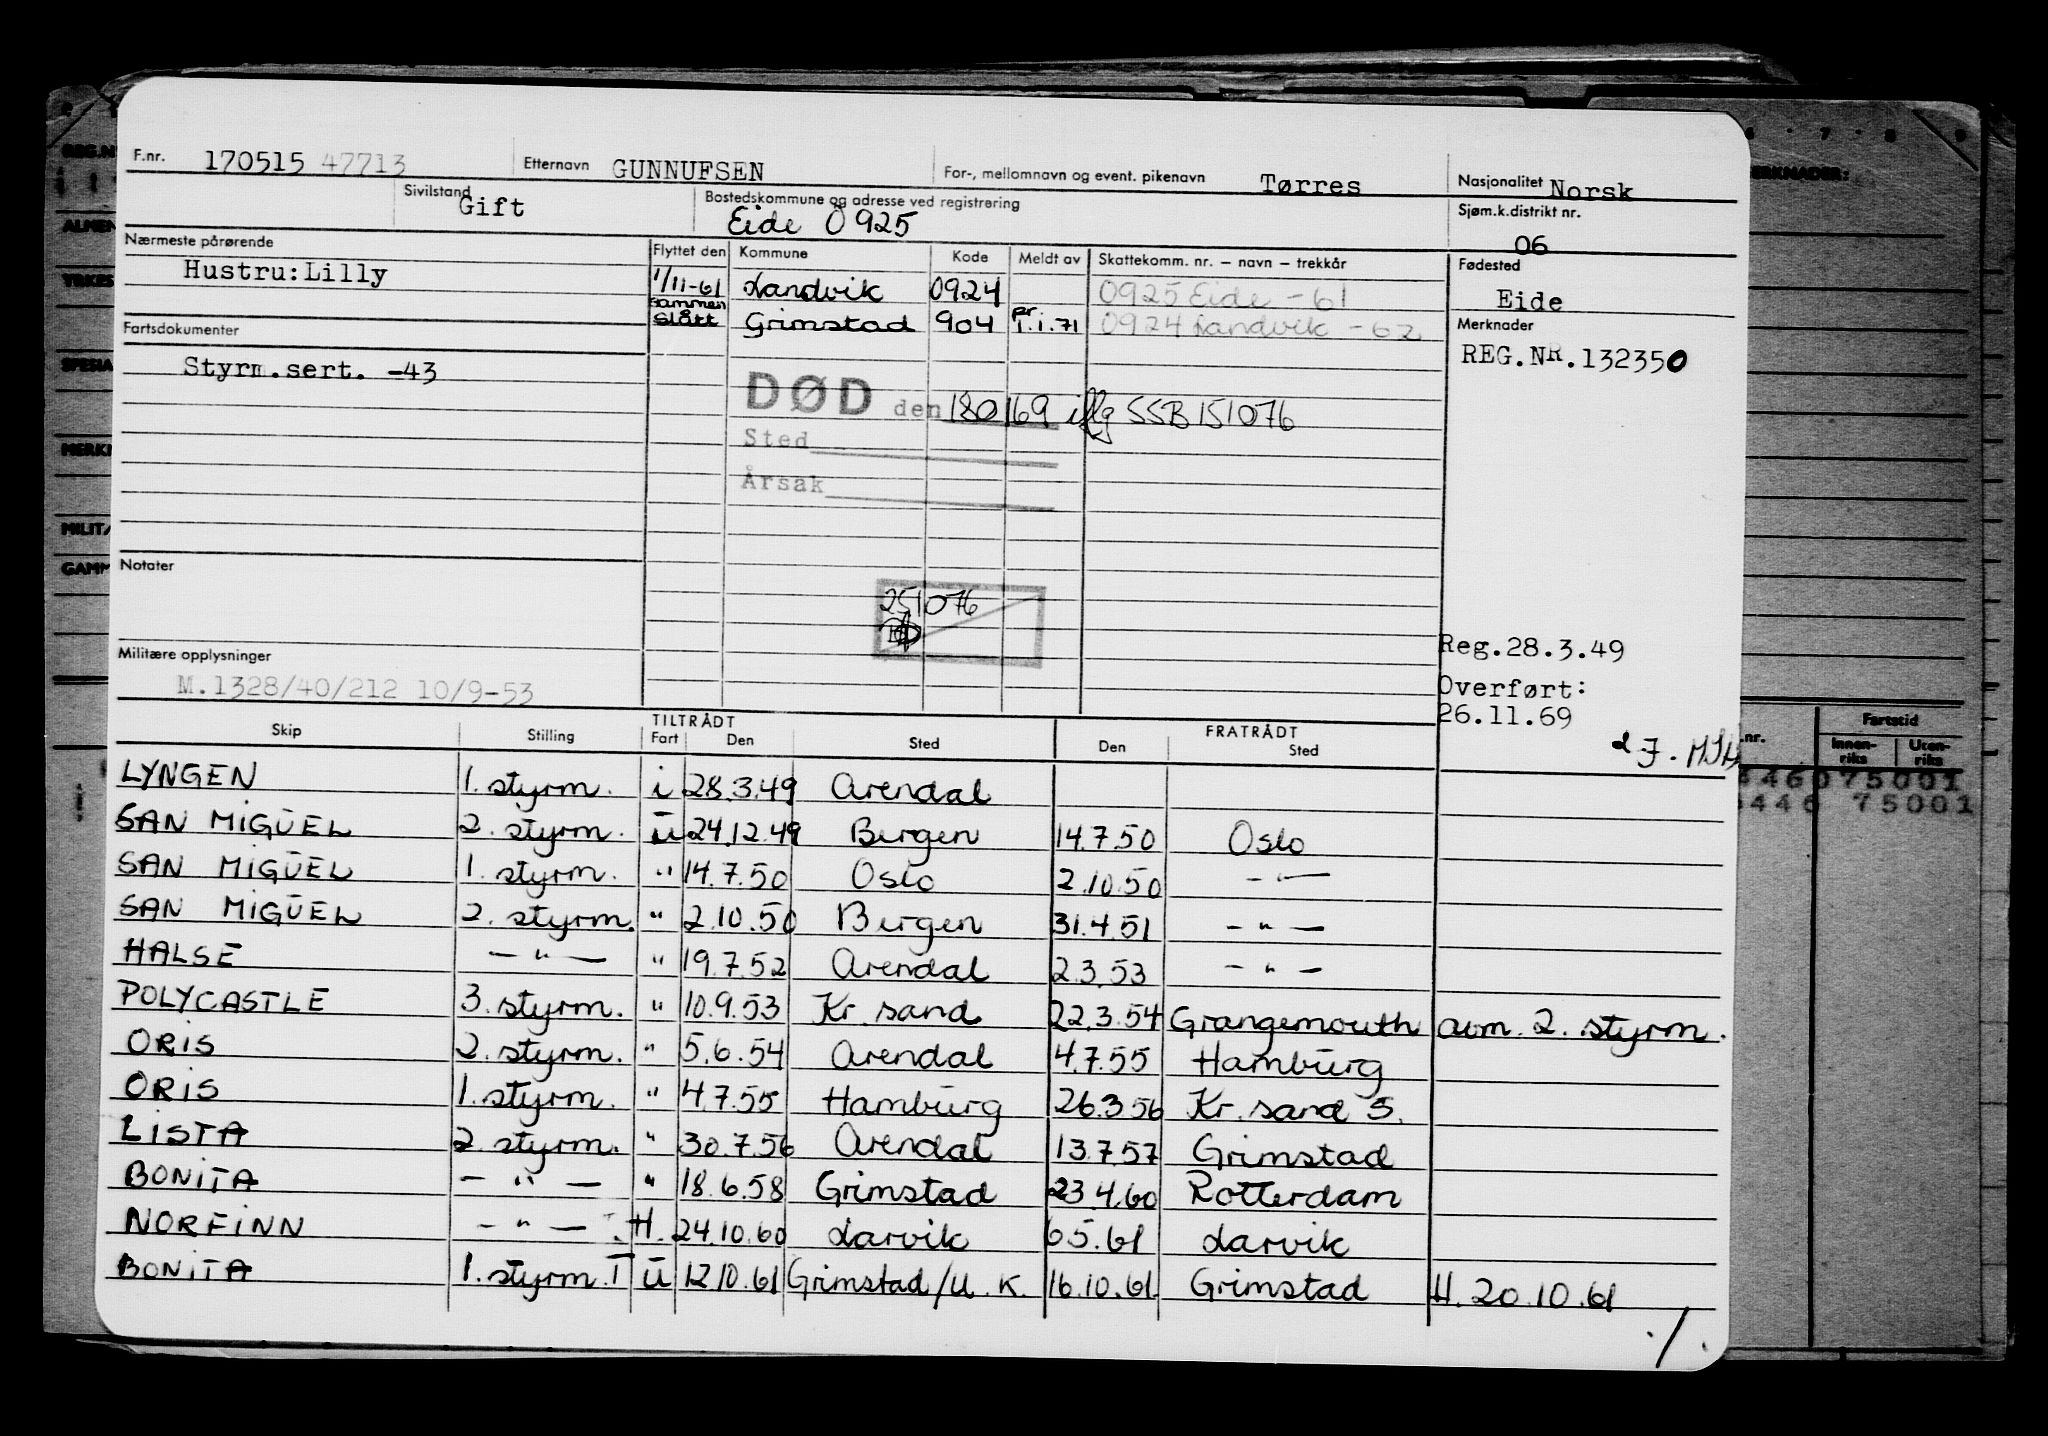 F.nr. 170515 47713 Etternavn GUNNUFSEN For-, mellomnavn og event. pikenavn Tørres Nasjonalitet Norsk
Sivilstand Gift Bostedskommune og adresse ved registrering Eide Ō 925 Sjøm.k.distrikt nr. 06
Nærmeste pårørende Flyttet den Kommune Kode Meldt av Skattekomm. nr. – navn – trekkår Fødested
Hustru:Lilly 1/11-61 Landvik 0924 0925 Eide -61 Eide
Fartsdokumenter sammen slått Grimstad 904 pr. 1.1.71 0924 Landvik -62 Merknader
Styrm.sert. -43 REG.NR.132350
DØD den 180169 iflg SSB 151076
Sted
Årsak
Notater
251076
Reg.28.3.49
Militære opplysninger
M.1328/40/212 10/9-53
Overført:
26.11.69
TILTRÅDT FRATRÅDT
Skip Stilling Fart Den Sted Den Sted
LYNGEN 1. styrm. i 28.3.49 Arendal
SAN MIGŪEL 2. styrm. ū 24.12.49 Bergen 14.7.50 Oslo
SAN MIGŪEL 1. styrm. " 14.7.50 Oslo 2.10.50 - " -
SAN MIGŪEL 2. styrm. " 2.10.50 Bergen 31.4.51 - " -
HALSE - " - " 19.7.52 Arendal 2.3.53 - " -
POLYCASTLE 3. styrm. " 10.9.53 Kr. sand 22.3.54 Grangemouth avm. 2. styrm.
ORIS 2. styrm. " 5.6.54 Arendal 4.7.55 Hambūrg
ORIS 1. styrm. " 4.7.55 Hambūrg 26.3.56 Kr. sand S.
LISTA 2. styrm. " 30.7.56 Arendal 13.7.57 Grimstad
BONITA - " - " 18.6.58 Grimstad 23.4.60 Rotterdam
NORFINN - " - H. 24.10.60 Larvik 6.5.61 Larvik
BONITA 1. styrm. I ū 12.10.61 Grimstad/U.K. 16.10.61 Grimstad H. 20.10.61
./.
REG.N
ALMEN
YRKES
SPESIA
MERK
MILIT
GAMM
ERKNADER:
6 · 7 · 8 · 9
Fartstid
nr. Innen-riks Uten-riks
446075001
446 75001